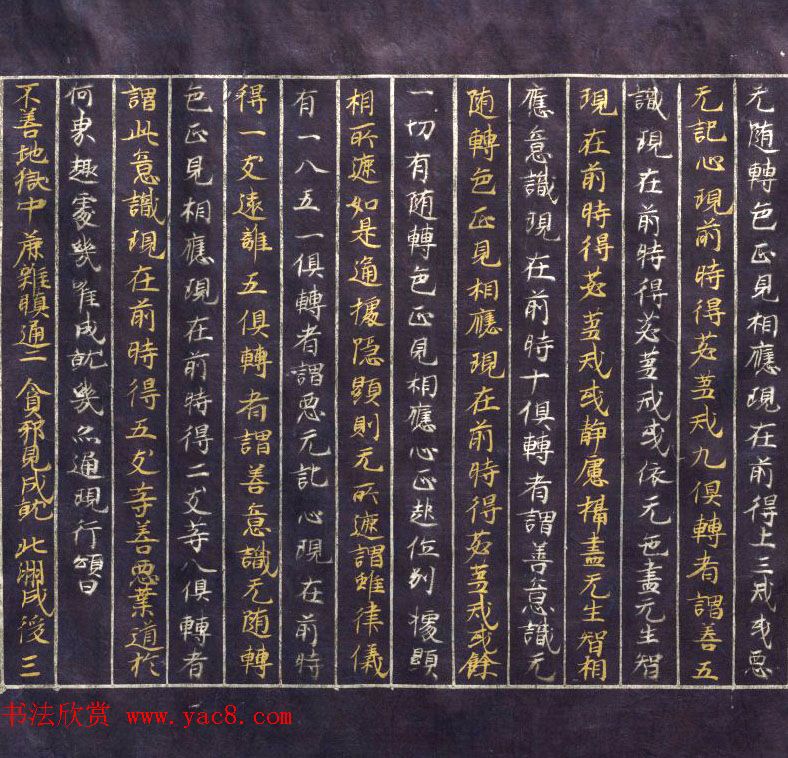 无随轉色正見相應現在前得上三戒或惡
无記心現前時得苾芻戒九俱轉者謂善五
識現在前時得苾芻戒或依无色盡无生智
現在前時得苾芻戒或静慮攝盡无生智相
應意識現在前時十俱轉者謂善意識无
随轉色正見相應現在前時得苾芻戒或餘
一切有随轉色正見相應心正起位别據顯
相所遮如是通據隱顯則无所遮謂離律儀
有一八五一俱轉者謂惡无記心現在前時
得一支遠離五俱轉者謂善意識无随轉
色正見相應現在前時得二支等八俱轉者
謂此意識現在前時得五支等善惡業道於
何界趣處幾唯成就幾亦通現行頌曰
不善地獄中 麁雜瞋通二 貪邪見成就 北洲成後三
书法欣赏 www.yac8.com